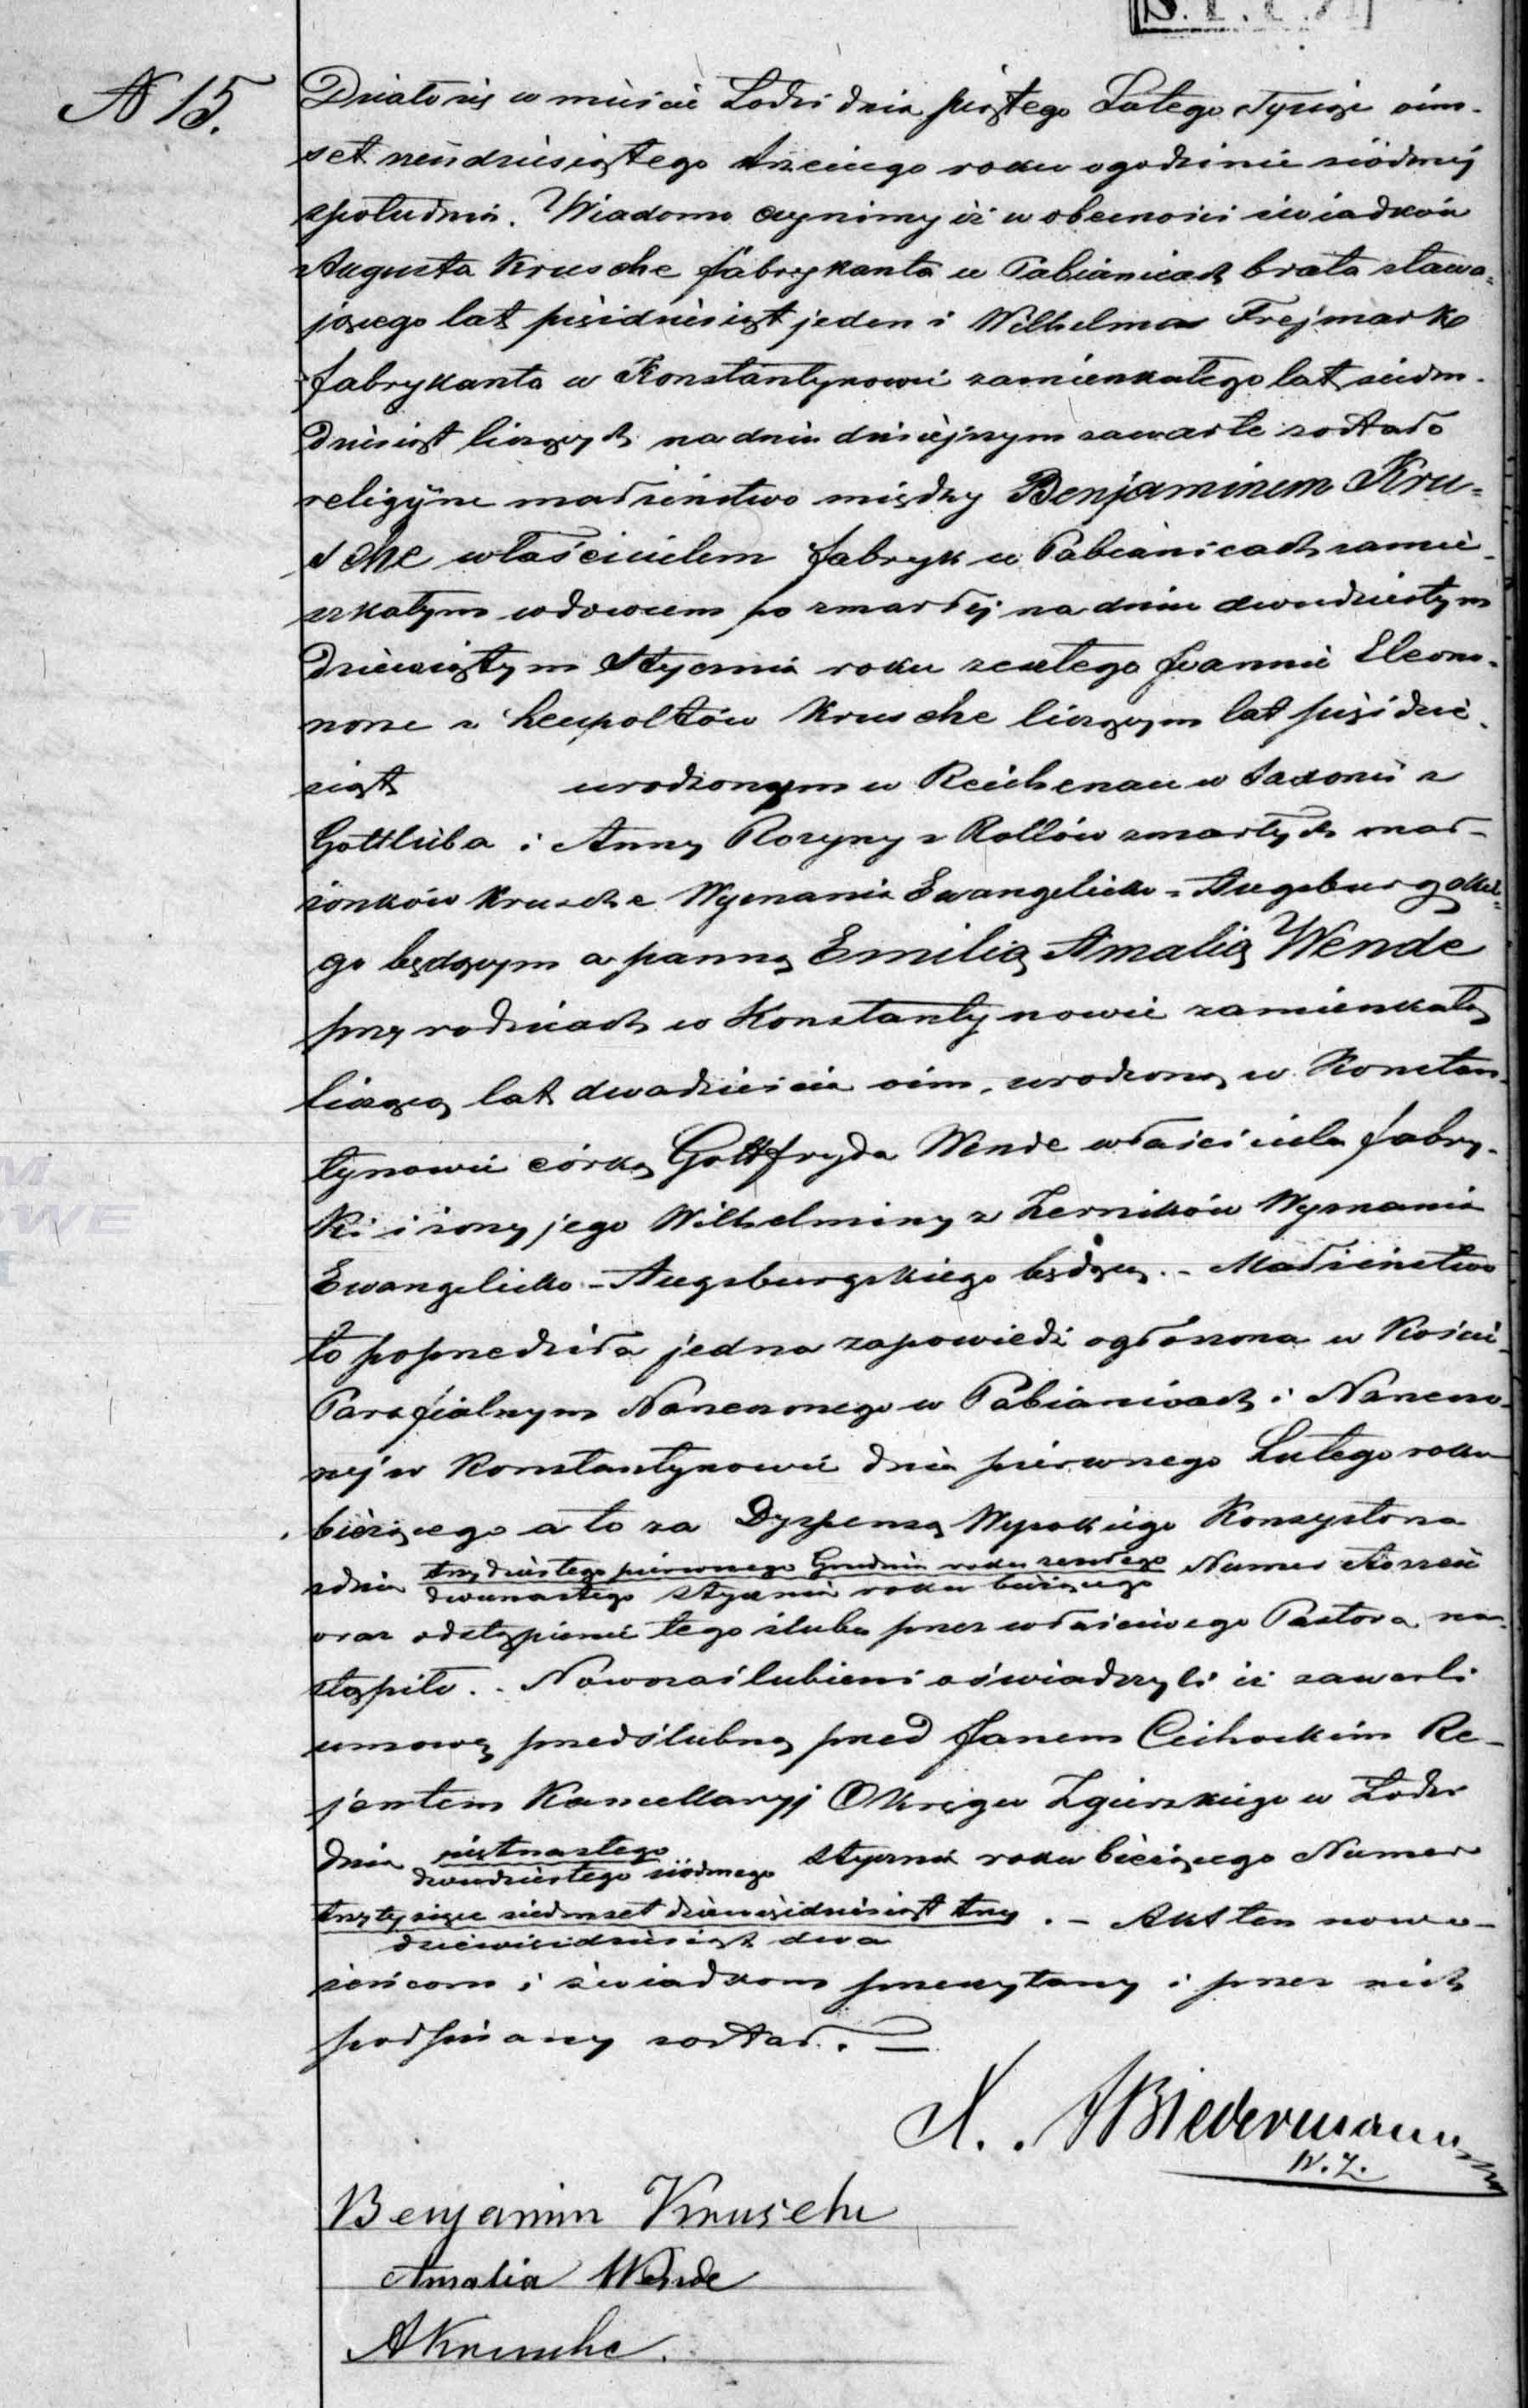 N 15.
Działo się w mieście Łodzi dnia piątego Lutego Tysiąc ośm-
set sześdziesiątego trzeciego roku o godzinie siódmej
z południa. Wiadomo czynimy iż w obecności świadków
Augusta Krusche fabrykanta w Pabianicach brata stawa-
jącego lat pięśdziesiąt jeden i Wilhelma Frejmark
fabrykanta w Konstantynowie zamieszkałego lat siedm-
dziesiąt liczących na dniu dzisiejszym zawarte zostało
religijne małżeństwo między Benjaminem Kru-
sche właścicielem fabryk w Pabianicach zamie-
szkałym wdowcem po zmarłej na dniu dwudziestym
dziewiątym Stycznia roku zeszłego Joannie Eleono-
norze z Leupoltów Krusche liczącym lat pięśdzie-
siąt urodzonym w Reichenau w Saxonii z
Gottlieba i Anny Rozyny z Rollów zmarłych mał-
żonków Krusche Wyznania Ewangelicko-Augsburgskie-
go będącym a panną Emilią Amalią Wende
przy rodzicach w Konstantynowie zamieszkałą
liczącą lat dwadzieścia ośm, urodzoną w Konstan-
tynowie córką Gottfryda Wende właściciela fabry-
ki i żony jego Wilhelminy z Lerników Wyznania
Ewangelicko-Augsburgskiego będącą. - Małżeństwo
to poprzedziła jedna zapowiedź ogłoszona w Kości-
Parafialnym Narzeczonego w Pabianicach i Narzeczo-
nej w Konstantynowie dnia pierwszego Lutego roku
bieżącego a to za Dyspensą Wysokiego Konsystorza
z dnia trzydziestego pierwszego Grudnia roku zeszłego Numer trzeci
dwunastego Stycznia roku bieżącego
oraz odstąpienie tego ślubu przez właściwego Pastora na-
stąpiło. - Nowozaślubieni oświadczyli iż zawarli
umowę przedślubną przed Janem Cichockim Re-
jentem Kancellaryj Okręgu Zgierskiego w Łodzi
dnia piętnastego Stycznia roku bieżącego Numer
dwudziestego siódmego
trzy tysiące siedmset dziewięśdziesiąt trzy. - Akt ten nowo-
dziewięśdziesiąt dwa
żeńcom i świadkom przeczytany i przez nich
podpisany został. =
X. Biedermann
Benjamin Krusche
Amalia Wende
A Krusche.